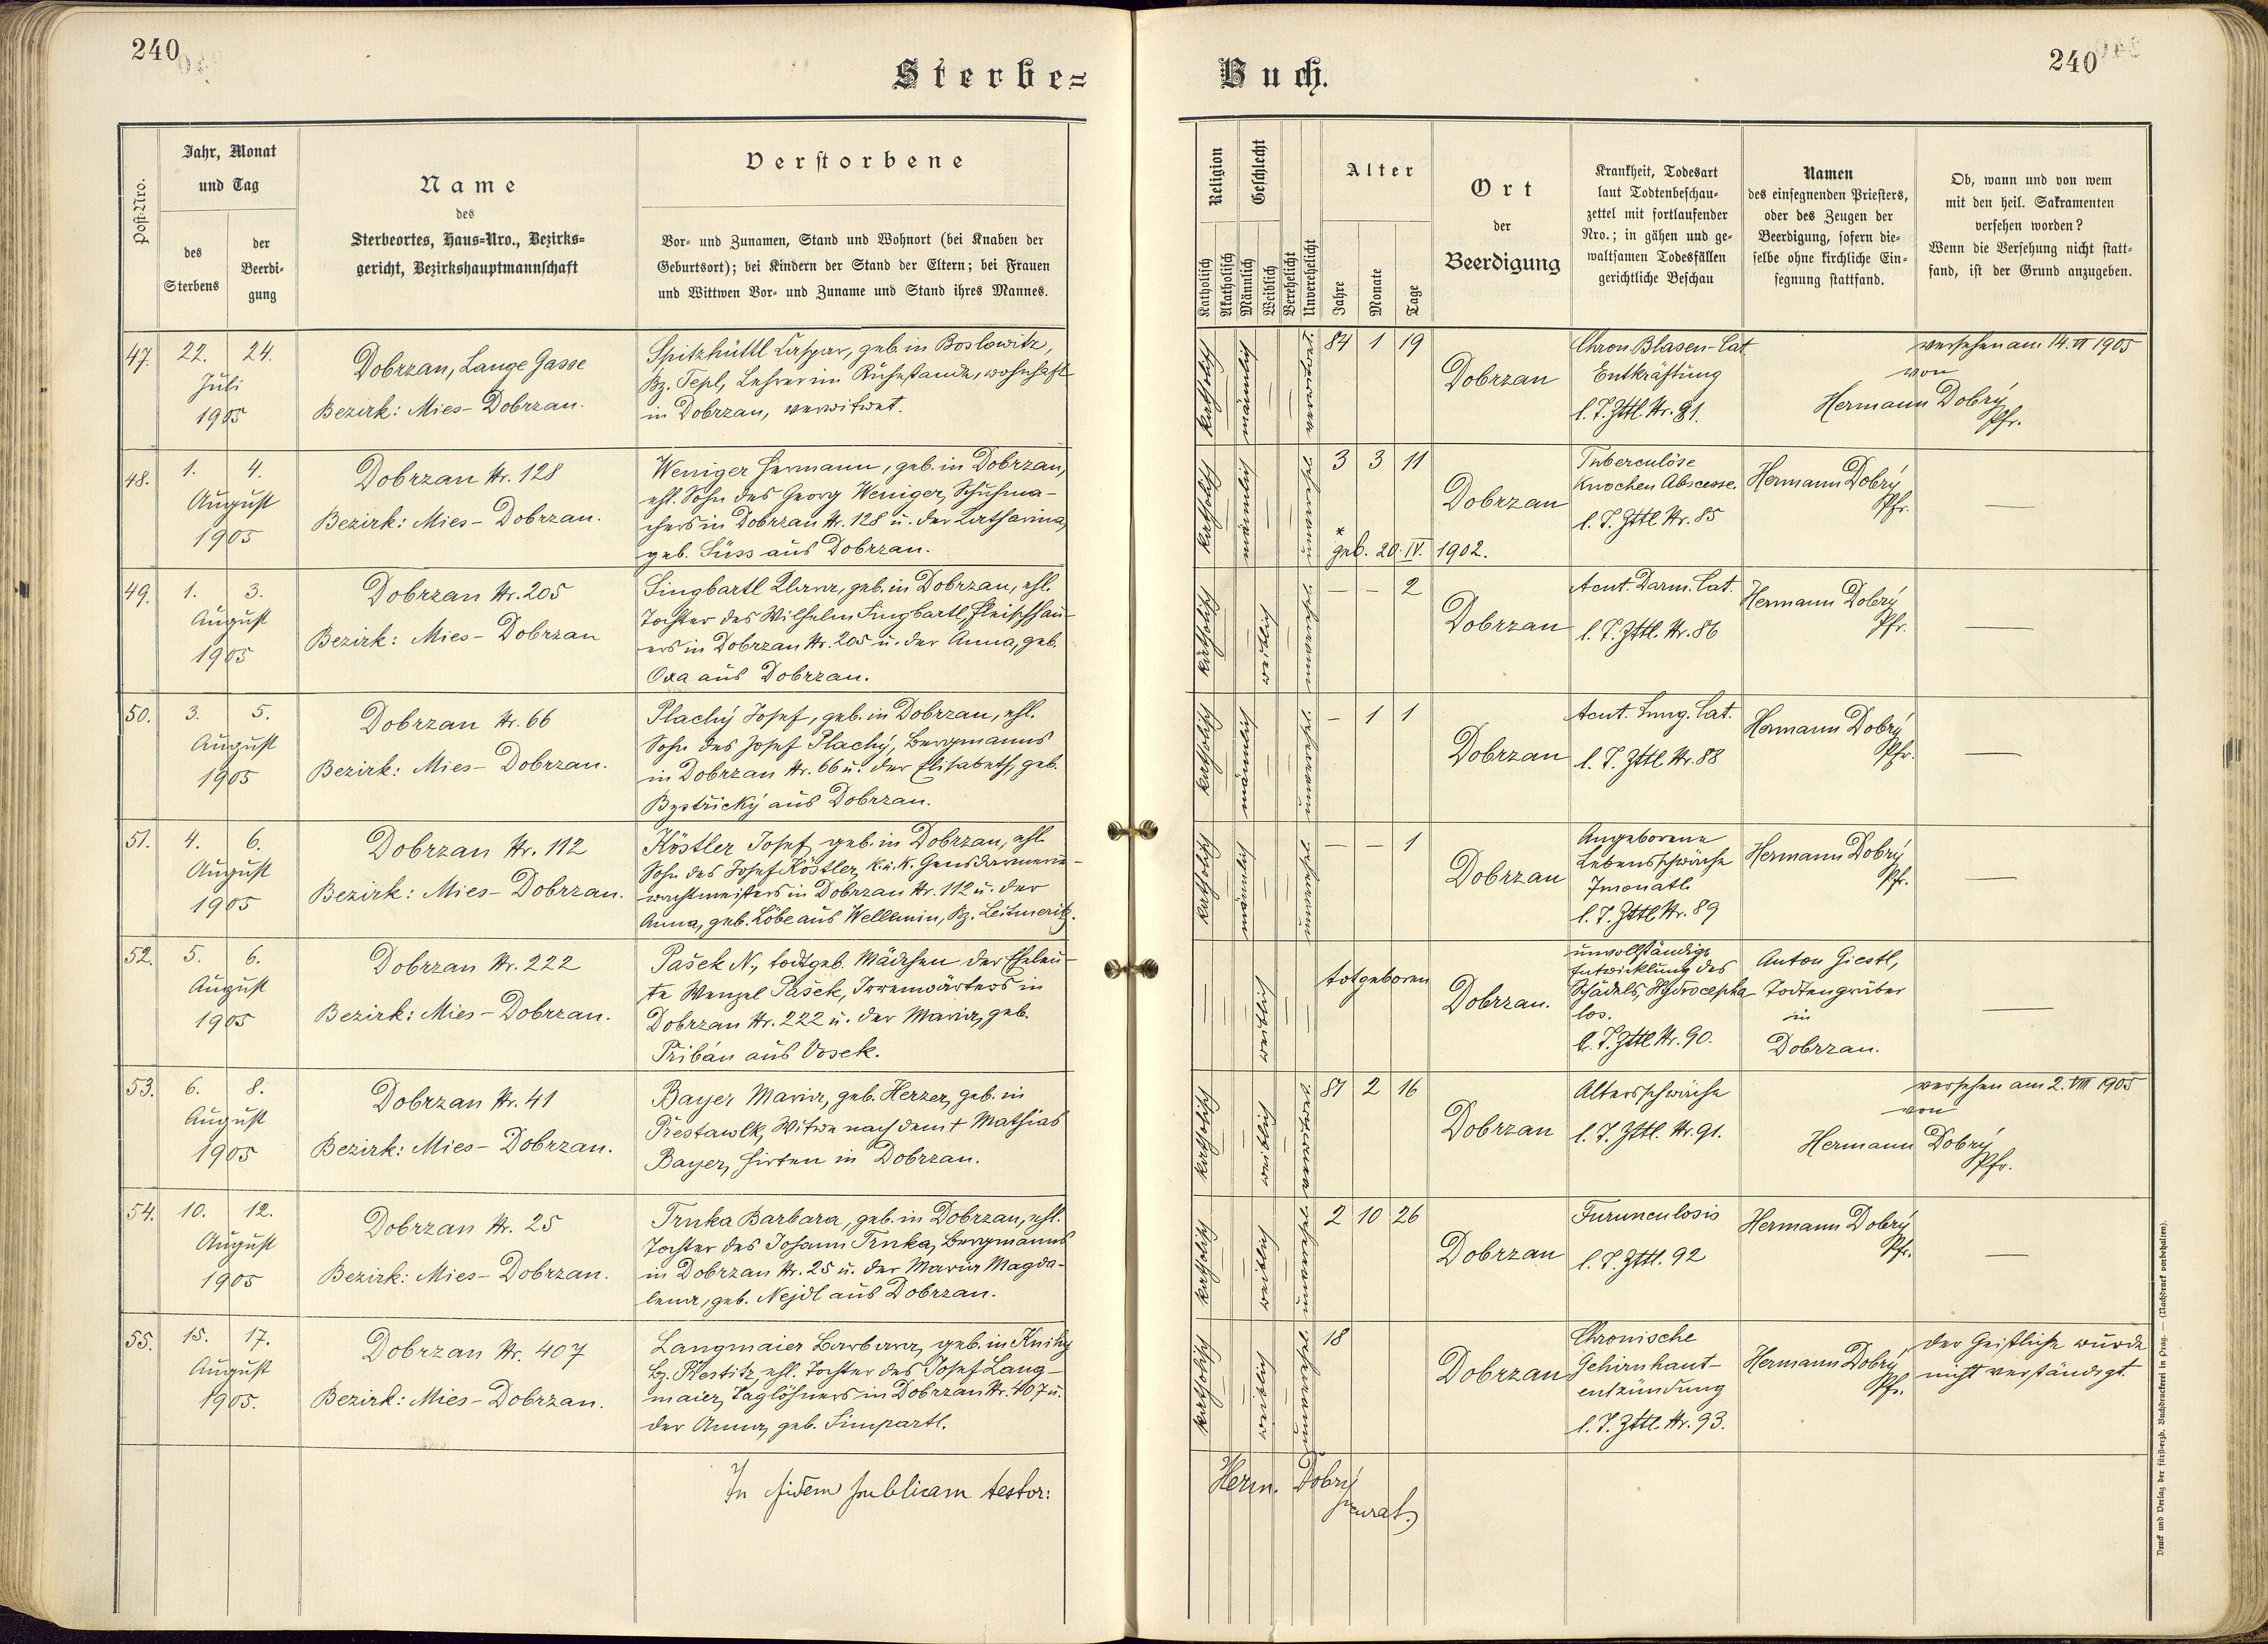 240
Sterbe=
Buch.
240
Post-Nro.
Jahr, Monat
und Tag
des
Sterbens
der
Beerdi-
gung
Name
des
Sterbeortes, Haus-Nro., Bezirks-
gericht, Bezirkshauptmannschaft
Verstorbene
Vor- und Zunamen, Stand und Wohnort (bei Knaben der
Geburtsort); bei Kindern der Stand der Eltern; bei Frauen
und Wittwen Vor- und Zuname und Stand ihres Mannes.
Religion
Katholisch
Akatholisch
Geschlecht
Männlich
Weiblich
Verehelicht
Unverehelicht
Alter
Jahre
Monate
Tage
Ort
der
Beerdigung
Krankheit, Todesart
laut Todtenbeschau-
zettel mit fortlaufender
Nro.; in gähen und ge-
waltsamen Todesfällen
gerichtliche Beschau
Namen
des einsegnenden Priesters,
oder des Zeugen der
Beerdigung, sofern die-
selbe ohne kirchliche Ein-
segnung stattfand.
Ob, wann und von wem
mit den heil. Sakramenten
versehen worden?
Wenn die Versehung nicht statt-
fand, ist der Grund anzugeben.
47. 22. 24.
Juli
1905
Dobrzan, Lange Gasse
Bezirk: Mies-Dobrzan.
Spitzhüttl Caspar, geb. in Boslowitz,
Bz. Tepl, Lehrer im Ruhestande, wohnhaft
in Dobrzan, verwitwet.
katholisch
männlich
verwitwet.
84 1 19
Dobrzan
Chron. Blasen-Cat
Entkräftung
l. T. Zttl. Nr. 81.
versehen am 14. VI 1905
von
Hermann Dobrý
Pfr.
48. 1. 4.
August
1905
Dobrzan Nr. 128
Bezirk: Mies-Dobrzan.
Weniger Hermann, geb. in Dobrzan,
ehl. Sohn des Georg Weniger, Schuhma-
chers in Dobrzan Nr. 128 u. der Katharina,
geb. Süss aus Dobrzan.
katholisch
männlich
unverehel.
3 3 11
*
geb. 20. IV. 1902.
Dobrzan
Tuberculöse
Knochen Abscesse.
l. T. Zttl Nr. 85
Hermann Dobrý
Pfr.
—
49. 1. 3.
August
1905
Dobrzan Nr. 205
Bezirk: Mies-Dobrzan
Singbartl Klara, geb. in Dobrzan, ehl.
Tochter des Wilhelm Singbartl, Fleischhau-
ers in Dobrzan Nr. 205 u. der Anna, geb.
Oxa aus Dobrzan.
katholisch
weiblich
unverehel.
— — 2
Dobrzan
Acut. Darm. Cat.
l. T. Zttl. Nr. 86
Hermann Dobrý
Pfr.
—
50. 3. 5.
August
1905
Dobrzan Nr. 66
Bezirk: Mies-Dobrzan.
Plachý Josef, geb. in Dobrzan, ehl.
Sohn des Josef Plachý, Bergmanns
in Dobrzan Nr. 66 u. der Elisabeth, geb.
Bystřický aus Dobrzan.
katholisch
männlich
unverehel.
— 1 1
Dobrzan
Acut. Lung. Cat.
l. T. Zttl Nr. 88
Hermann Dobrý
Pfr.
—
51. 4. 6.
August
1905
Dobrzan Nr. 112
Bezirk: Mies-Dobrzan.
Köstler Josef, geb. in Dobrzan, ehl.
Sohn des Josef Köstler, k. u. k. Gensdarmerie-
wachtmeisters in Dobrzan Nr. 112 u. der
Anna, geb. Löbe aus Wellemin, Bz. Leitmeritz.
katholisch
männlich
unverehel.
— — 1
Dobrzan
Angeborene
Lebensschwäche
7monatl.
l. T. Zttl Nr. 89
Hermann Dobrý
Pfr.
—
52. 5. 6.
August
1905
Dobrzan Nr. 222
Bezirk: Mies-Dobrzan.
Pašek N., todtgeb. Mädchen der Eheleu-
te Wenzel Pašek, Irrenwärters in
Dobrzan Nr. 222 u. der Maria, geb.
Přibán aus Vosek.
—
weiblich
totgeboren
Dobrzan.
unvollständige
Entwicklung des
Schädels, Hydrocepha
los.
l. T. Zttl Nr. 90.
Anton Giestl,
Todtengräber
in
Dobrzan.
—
53. 6. 8.
August
1905
Dobrzan Nr. 41
Bezirk: Mies-Dobrzan.
Bayer Maria, geb. Herzer, geb. in
Přestawlk, Witwe nach dem † Mathias
Bayer, Hirten in Dobrzan.
katholisch
weiblich
verwitwet
81 2 16
Dobrzan
Altersschwäche
l. T. Zttl. Nr. 91.
versehen am 2. VIII 1905
von
Hermann Dobrý
Pfr.
54. 10. 12.
August
1905
Dobrzan Nr. 25
Bezirk: Mies-Dobrzan.
Trnka Barbara, geb. in Dobrzan, ehl.
Tochter des Johann Trnka, Bergmanns
in Dobrzan Nr. 25 u. der Maria Magda-
lena, geb. Nejdl aus Dobrzan.
katholisch
weiblich
unverehel
2 10 26
Dobrzan
Furunculosis
l. T. Zttl. 92
Hermann Dobrý
Pfr.
—
55. 15. 17.
August
1905.
Dobrzan Nr. 407
Bezirk: Mies-Dobrzan.
Langmaier Barbara, geb. in Knihy
Bz. Přestitz, ehl. Tochter des Josef Lang-
maier, Taglöhners in Dobrzan Nr. 407 u.
der Anna, geb. Simpartl.
katholisch
weiblich
unverehel
18
Dobrzan
Chronische
Gehirnhaut-
entzündung
l. T. Zttl. Nr. 93.
Hermann Dobrý
Pfr.
Der Geistliche wurde
nicht verständigt.
In fidem publicam testor:
Herm. Dobrý
Druck und Verlag der fürst-erzb. Buchdruckerei in Prag. — (Nachdruck vorbehalten).